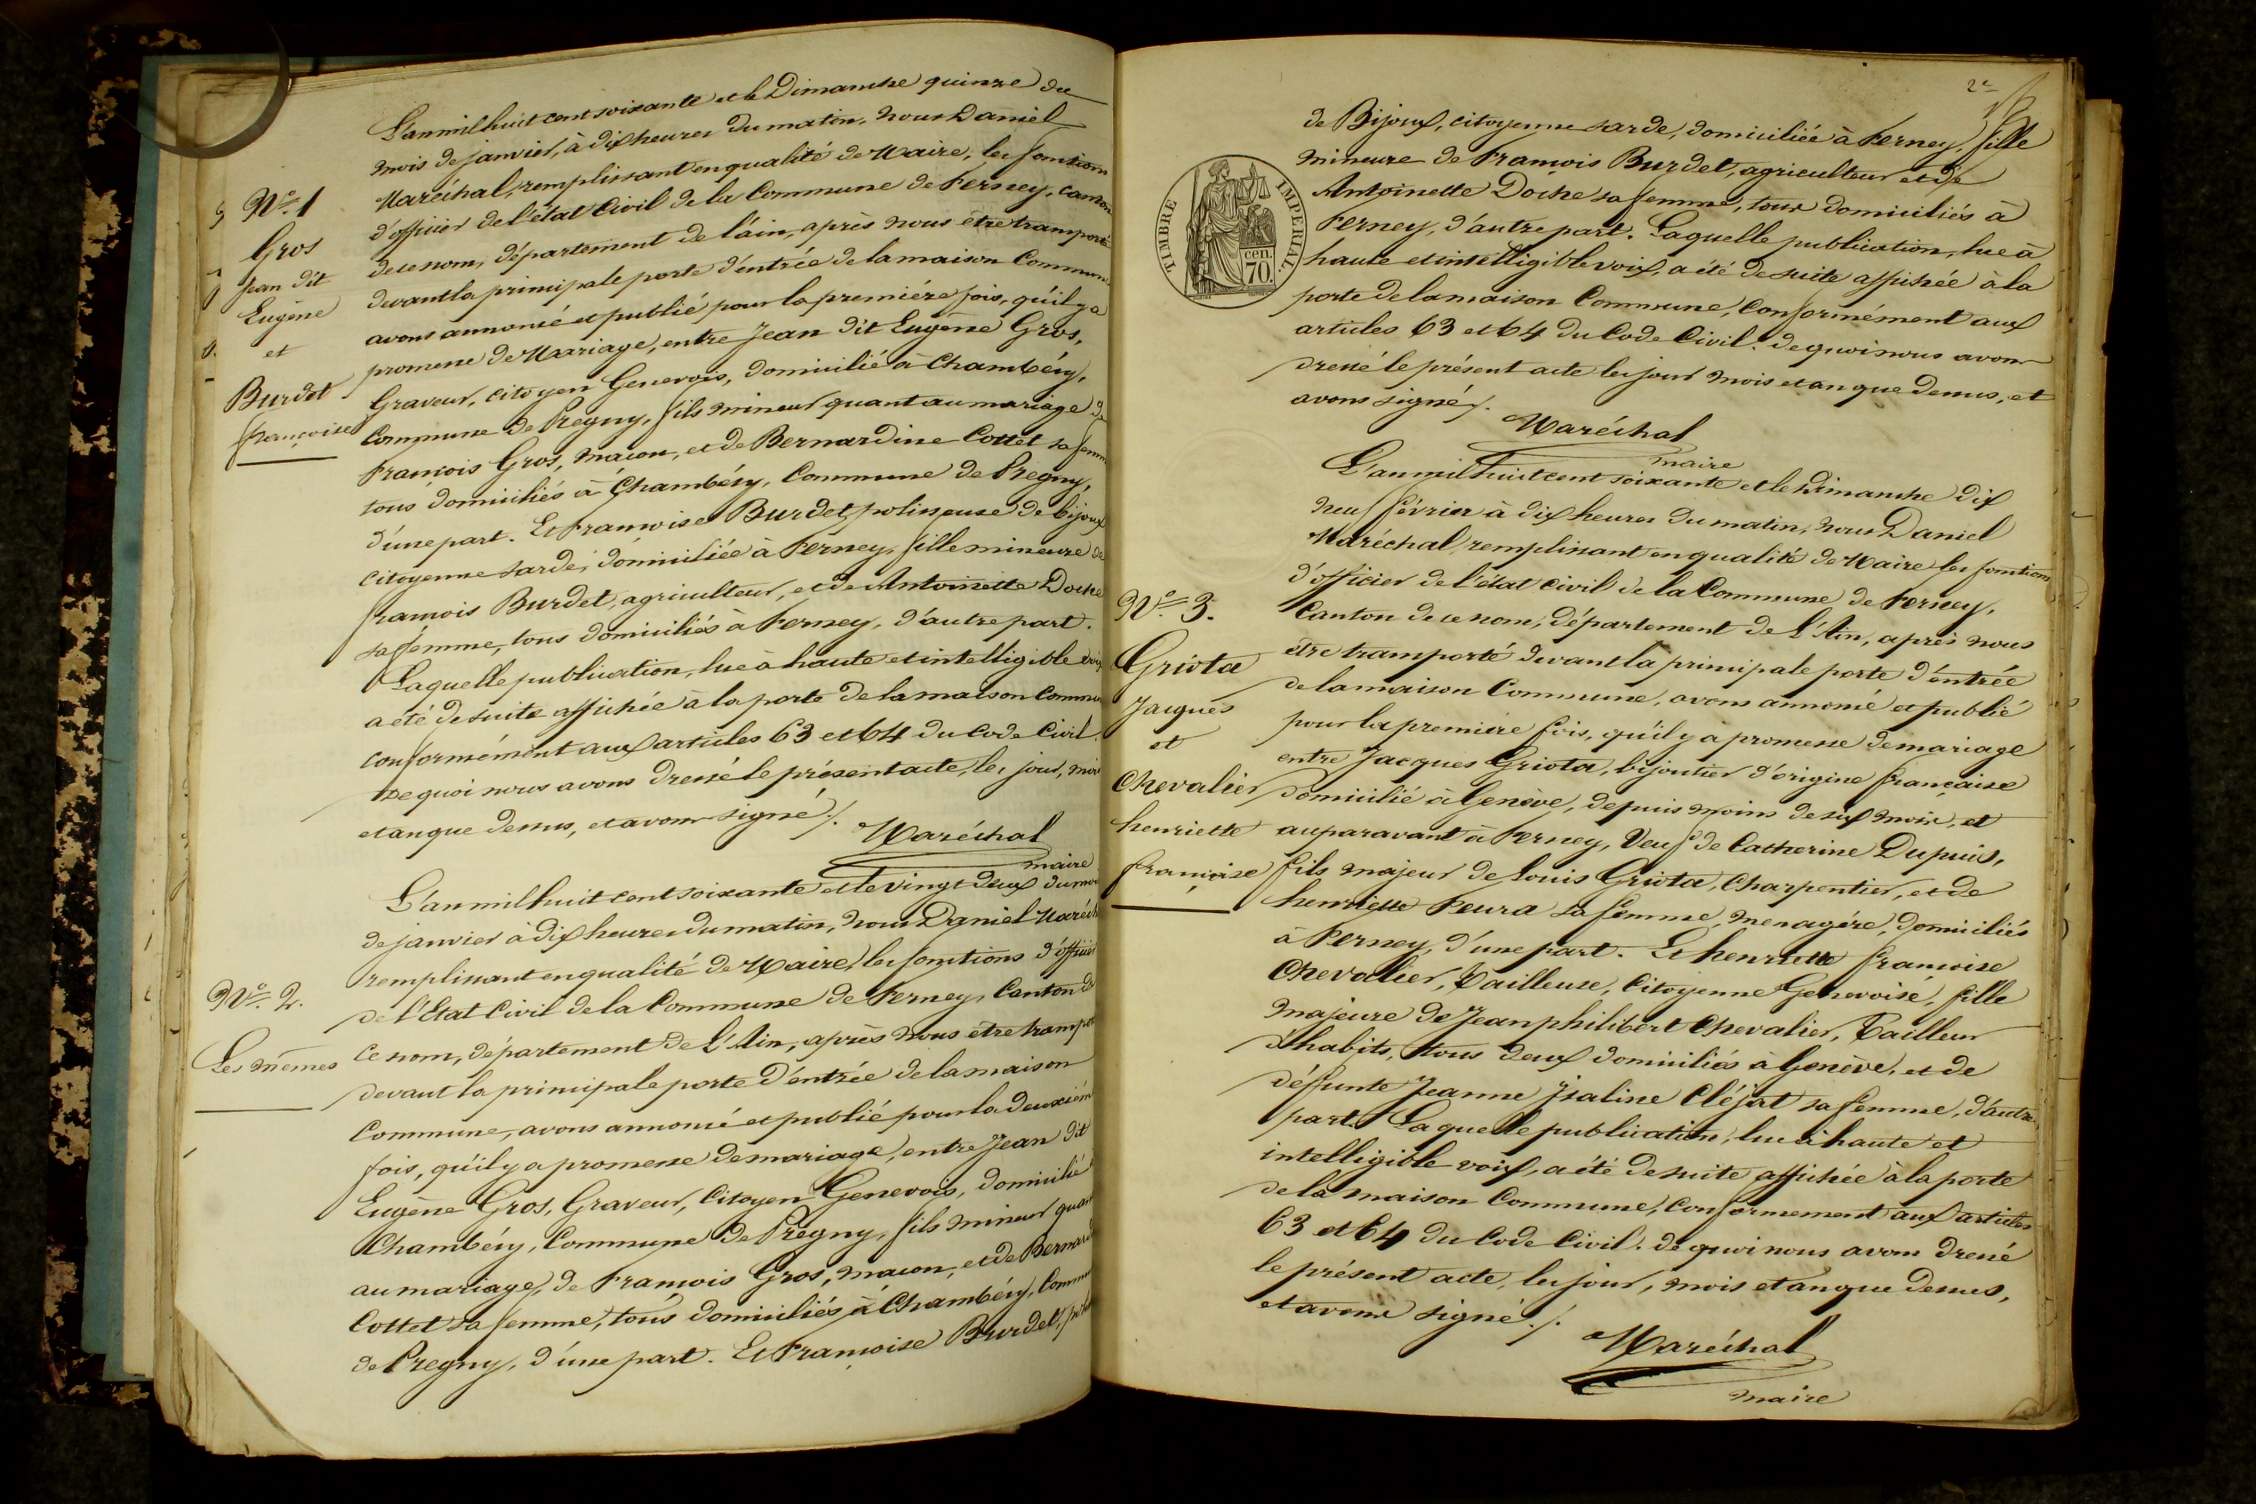 L'an mil huit cent soixante et le Dimanche quinze du
mois de janvier, à dix heures du matin, nous Daniel
Maréchal, remplissant en qualité de Maire, les fonctions
d'officier de l'état Civil de la Commune de Ferney, canton
de ce nom, département de l'ain, après nous être transporté
devant la principale porte d'entrée de la maison Commune
avons annoncé et publié pour la première fois, qu'il y a
promesse de Mariage, entre Jean dit Eugène Gros,
Graveur, citoyen Genevois, domicilié à Chambésy,
Commune de Pregny, fils mineur quant au mariage de
François Gros, maçon, et de Bernardine Cottet sa femme
tous domiciliés à Chambésy, Commune de Pregny,
d'une part. Et Françoise Burdet, polisseuse de bijoux
citoyenne sarde, domiciliée à Ferney, fille mineure de
François Burdet, agriculteur, et de Antoinette Doche
sa femme, tous domiciliés à Ferney, d'autre part.
Laquelle publication, lue à haute et intelligible voix
a été de suite affichée à la porte de la maison Commune
conformément aux articles 63 et 64 du Code Civil.
De quoi nous avons dressé le présent acte, les jour, mois
et an que dessus, et avons signé ./.
Maréchal
maire
N° 1
Gros
jean dit
Eugène
et
Burdet
françoise
L'an mil huit cent soixante et le vingt deux du mois
de janvier à dix heures du matin, nous Daniel Maréchal
remplissant en qualité de Maire, les fonctions d'officier
de l'Etat Civil de la Commune de Ferney, Canton de
ce nom, département de L'Ain, après nous être transporté
devant la principale porte d'entrée de la maison
Commune, avons annoncé et publié pour la deuxième
fois, qu'il y a promesse de mariage, entre Jean dit
Eugène Gros, Graveur, Citoyen Genevois, domicilié
Chambésy, Commune de Pregny, fils mineur quant
au mariage, de François Gros, maçon, et de Bernardine
Cottet sa femme, tous domiciliés à Chambésy, Commune
de Pregny, d'une part. Et Françoise Burdet, polisseuse
N° 2.
Les mêmes
2e
de Bijoux, citoyenne sarde, domiciliée à Ferney, fille
mineure de François Burdet, agriculteur et de
Antoinette Doche sa femme, tous domiciliés à
Ferney, d'autre part. Laquelle publication, lue à
haute et intelligible voix, a été de suite affichée à la
porte de la maison Commune, Conformément aux
articles 63 et 64 du Code Civil. de quoi nous avons
dressé le présent acte les jour mois et an que dessus, et
avons signé ./.
Maréchal
maire
TIMBRE IMPERIAL.
cen.
70.
L'an mil huit cent soixante et le Dimanche dix
neuf février à dix heures du matin, nous Daniel
Maréchal, remplissant en qualité de Maire les fonctions
d'officier de l'état civil de la Commune de Ferney,
Canton de ce nom, département de L'Ain, après nous
être transporté devant la principale porte d'entrée
de la maison Commune, avons annoncé et publié
pour la première fois, qu'il y a promesse de mariage
entre Jacques Griota, bijoutier d'origine française
domicilié à Genève, depuis moins de six mois, et
auparavant à Ferney, Veuf de Catherine Dupuis,
fils majeur de Louis Griota, Charpentier, et de
henriette Peura sa femme, menagère, domiciliés
à Ferney, d'une part. Et henriette françoise
Chevalier, Tailleuse, Citoyenne Genevoise, fille
majeure de Jean philibert Chevalier, Tailleur
d'habits, tous deux domiciliés à Genève, et de
défunte Jeanne Isaline Cléjat sa femme, d'autre
part. Laquelle publication, lue à haute et
intelligible voix, a été de suite affichée à la porte
de la maison Commune, Conformement aux articles
63 et 64 du Code Civil. de quoi nous avons dressé
le présent acte, les jour, mois et an que dessus,
et avons signé ./.
Maréchal
maire
N° 3.
Griota
Jacques
et
Chevalier
henriette
françoise